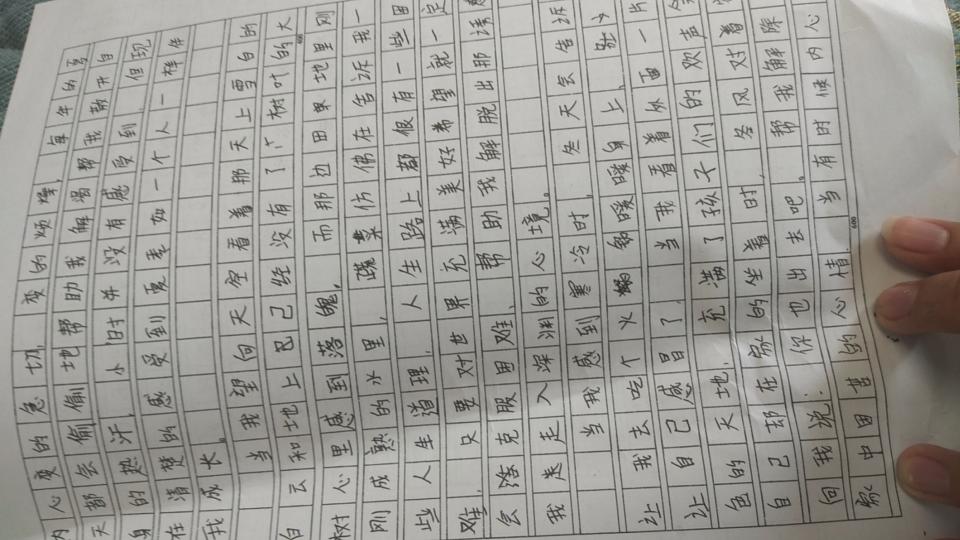 内心变的急切,变的烦燥,每年的
天都会偷偷地帮助我解渴帮我敞开自
身的热汗,小时并没有感受到,但现
在清楚的感受到夏季如一个人一样伴
我成长。
当我望向天空看着那天上雪白的
白云和地上已经没有了树叶的大
树心里感到落魄,而那边田果地里刚
刚成熟的水里,蔬菜仿佛在告诉我一
些人生道理,人生路上都很有一些困
难,只要对世界充满美好希望就一定
会落克服困难,帮助我解脱出那诱
我卷走入深渊的心境。
当我感到寒冷时,冬天会告诉
让我去吃个火锅暖暖身上,别
让自己感冒了,当我看着从面一片
色的天地,充满了孩子们的欢声
自己却在家的坐着时,冬风对着
向我说:你也出去吧。帮我解除
家中困苦的心情,当有时候内心
600